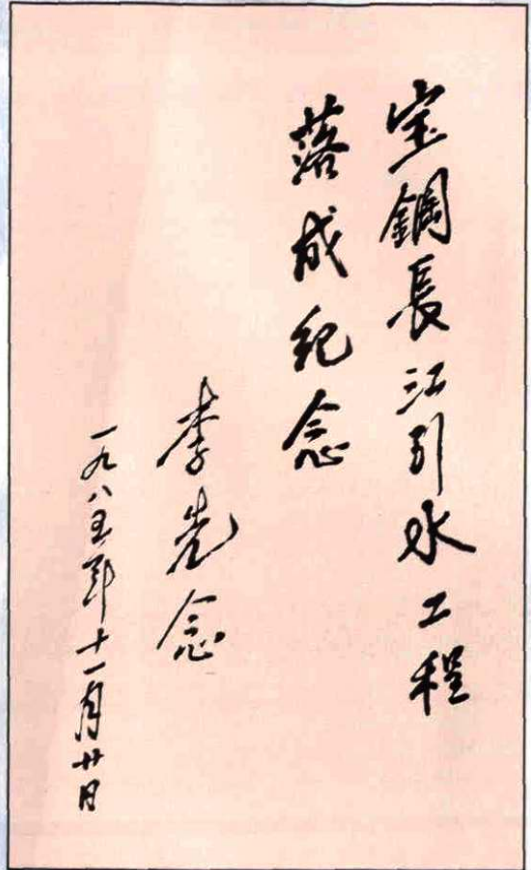 宝鋼長江引水工程
落成紀念
李先念
一九八五年十一月廿日